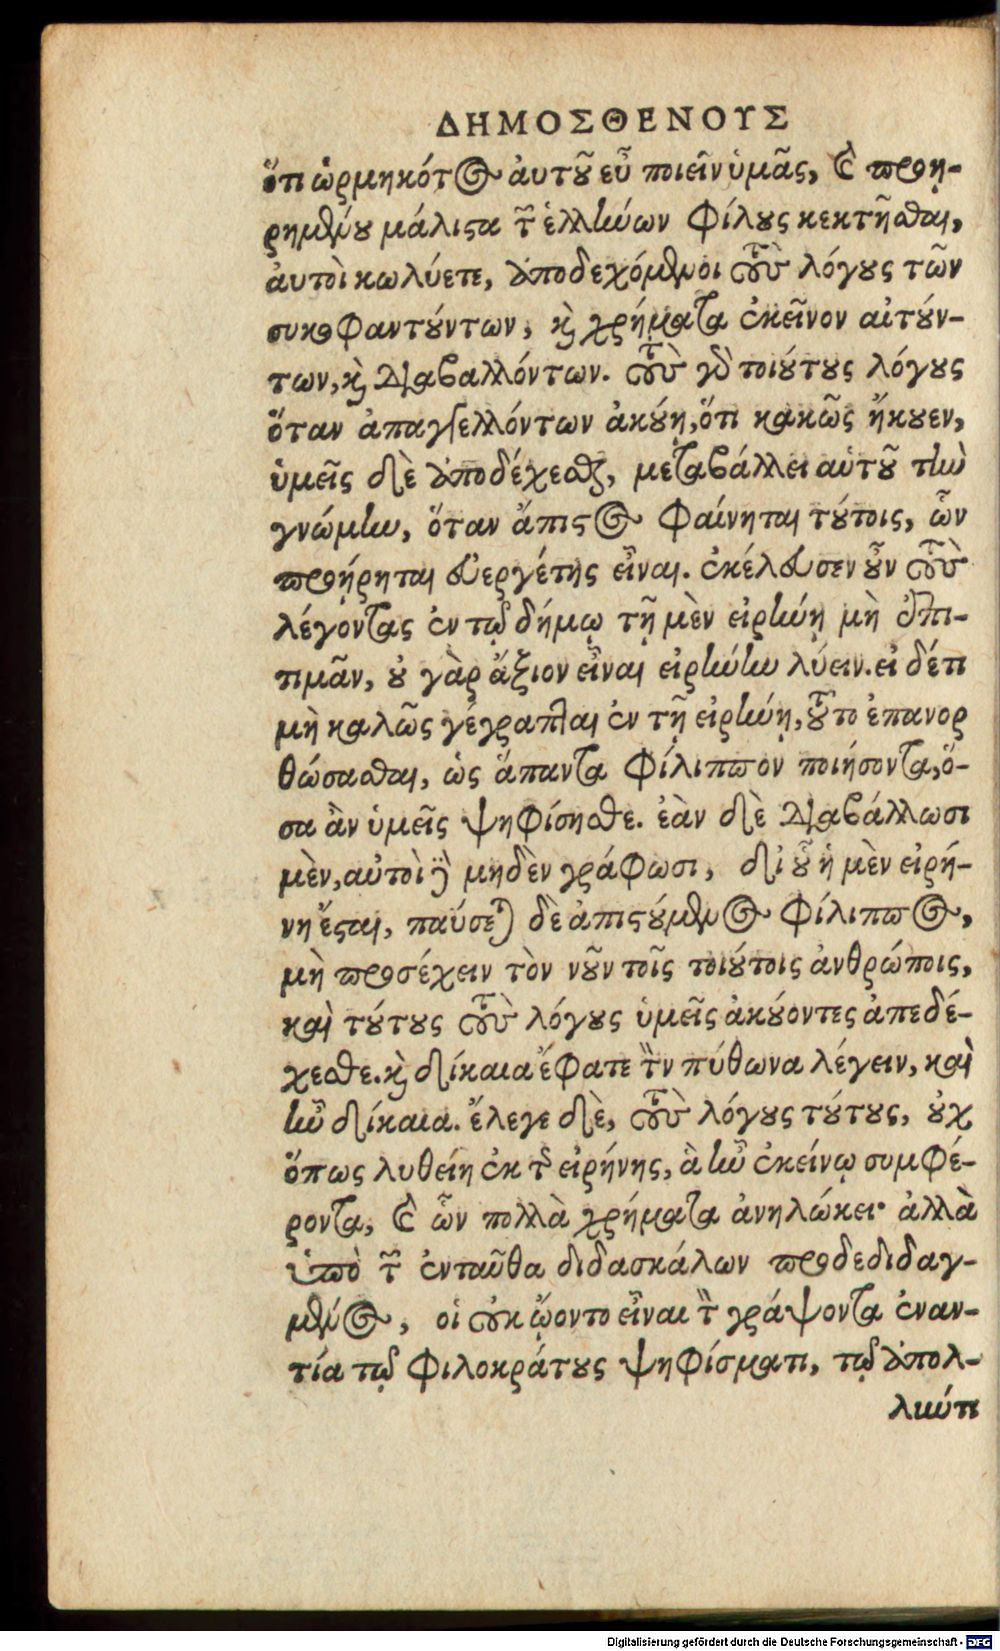 ΔΗΜΟΣΘΕΝΟΥΣ
ὅτι ὡρμηκότος ἀυτοῦ εὖ ποιεῖν ὑμᾶς, καὶ προῃ-
ρημένου μάλιστα τῶν ἑλλήνων φίλους κεκτῆσθαι,
ἀυτοὶ κωλύετε, ἀποδεχόμενοι τοὺς λόγους τῶν
συκοφαντούντων, καὶ χρήματα ἐκεῖνον αἰτούν-
των, καὶ διαβαλλόντων. τοὺς γὰρ τοιούτους λόγους
ὅταν ἀπαγγελλόντων ἀκούῃ, ὅτι κακῶς ἤκουεν,
ὑμεῖς δὲ ἀποδέχεσθε, μεταβάλλει αὑτοῦ τὴν
γνώμην, ὅταν ἄπιστος φαίνηται τούτοις, ὧν
προῄρηται εὐεργέτης εἶναι. ἐκέλευσεν οὖν τοὺς
λέγοντας ἐν τῷ δήμῳ τῇ μὲν εἰρήνῃ μὴ ἐπι-
τιμᾶν, οὐ γὰρ ἄξιον εἶναι εἰρήνην λύειν. εἰ δέ τι
μὴ καλῶς γέγραπται ἐν τῇ εἰρήνῃ, τοῦτο ἐπανορ
θώσασθαι, ὡς ἅπαντα Φίλιππον ποιήσοντα, ὅ-
σα ἂν ὑμεῖς ψηφίσησθε. ἐὰν δὲ διαβάλλωσι
μὲν, αὐτοὶ δὲ μηδὲν γράφωσι, δι' οὗ ἡ μὲν εἰρή-
νη ἔσται, παύσεται δὲ ἀπιστούμενος Φίλιππος,
μὴ προσέχειν τὸν νοῦν τοῖς τοιούτοις ἀνθρώποις,
καὶ τούτους τοὺς λόγους ὑμεῖς ἀκούοντες ἀπεδέ-
χεσθε. καὶ δίκαια ἔφατε τὸν πύθωνα λέγειν, καὶ
ἦν δίκαια. ἔλεγε δὲ, τοὺς λόγους τούτους, οὐχ
ὅπως λυθείη ἐκ τῆς εἰρήνης, ἃ ἦν ἐκείνῳ συμφέ-
ροντα, καὶ ὧν πολλὰ χρήματα ἀνηλώκει· ἀλλὰ
ὑπὸ τῶν ἐνταῦθα διδασκάλων προδεδιδαγ-
μένος, οἳ οὐκ ᾤοντο εἶναι τὸν γράψοντα ἐναν-
τία τῷ Φιλοκράτους ψηφίσματι, τῷ ἀπολ-
λύντι
Digitalisierung gefördert durch die Deutsche Forschungsgemeinschaft - DFG